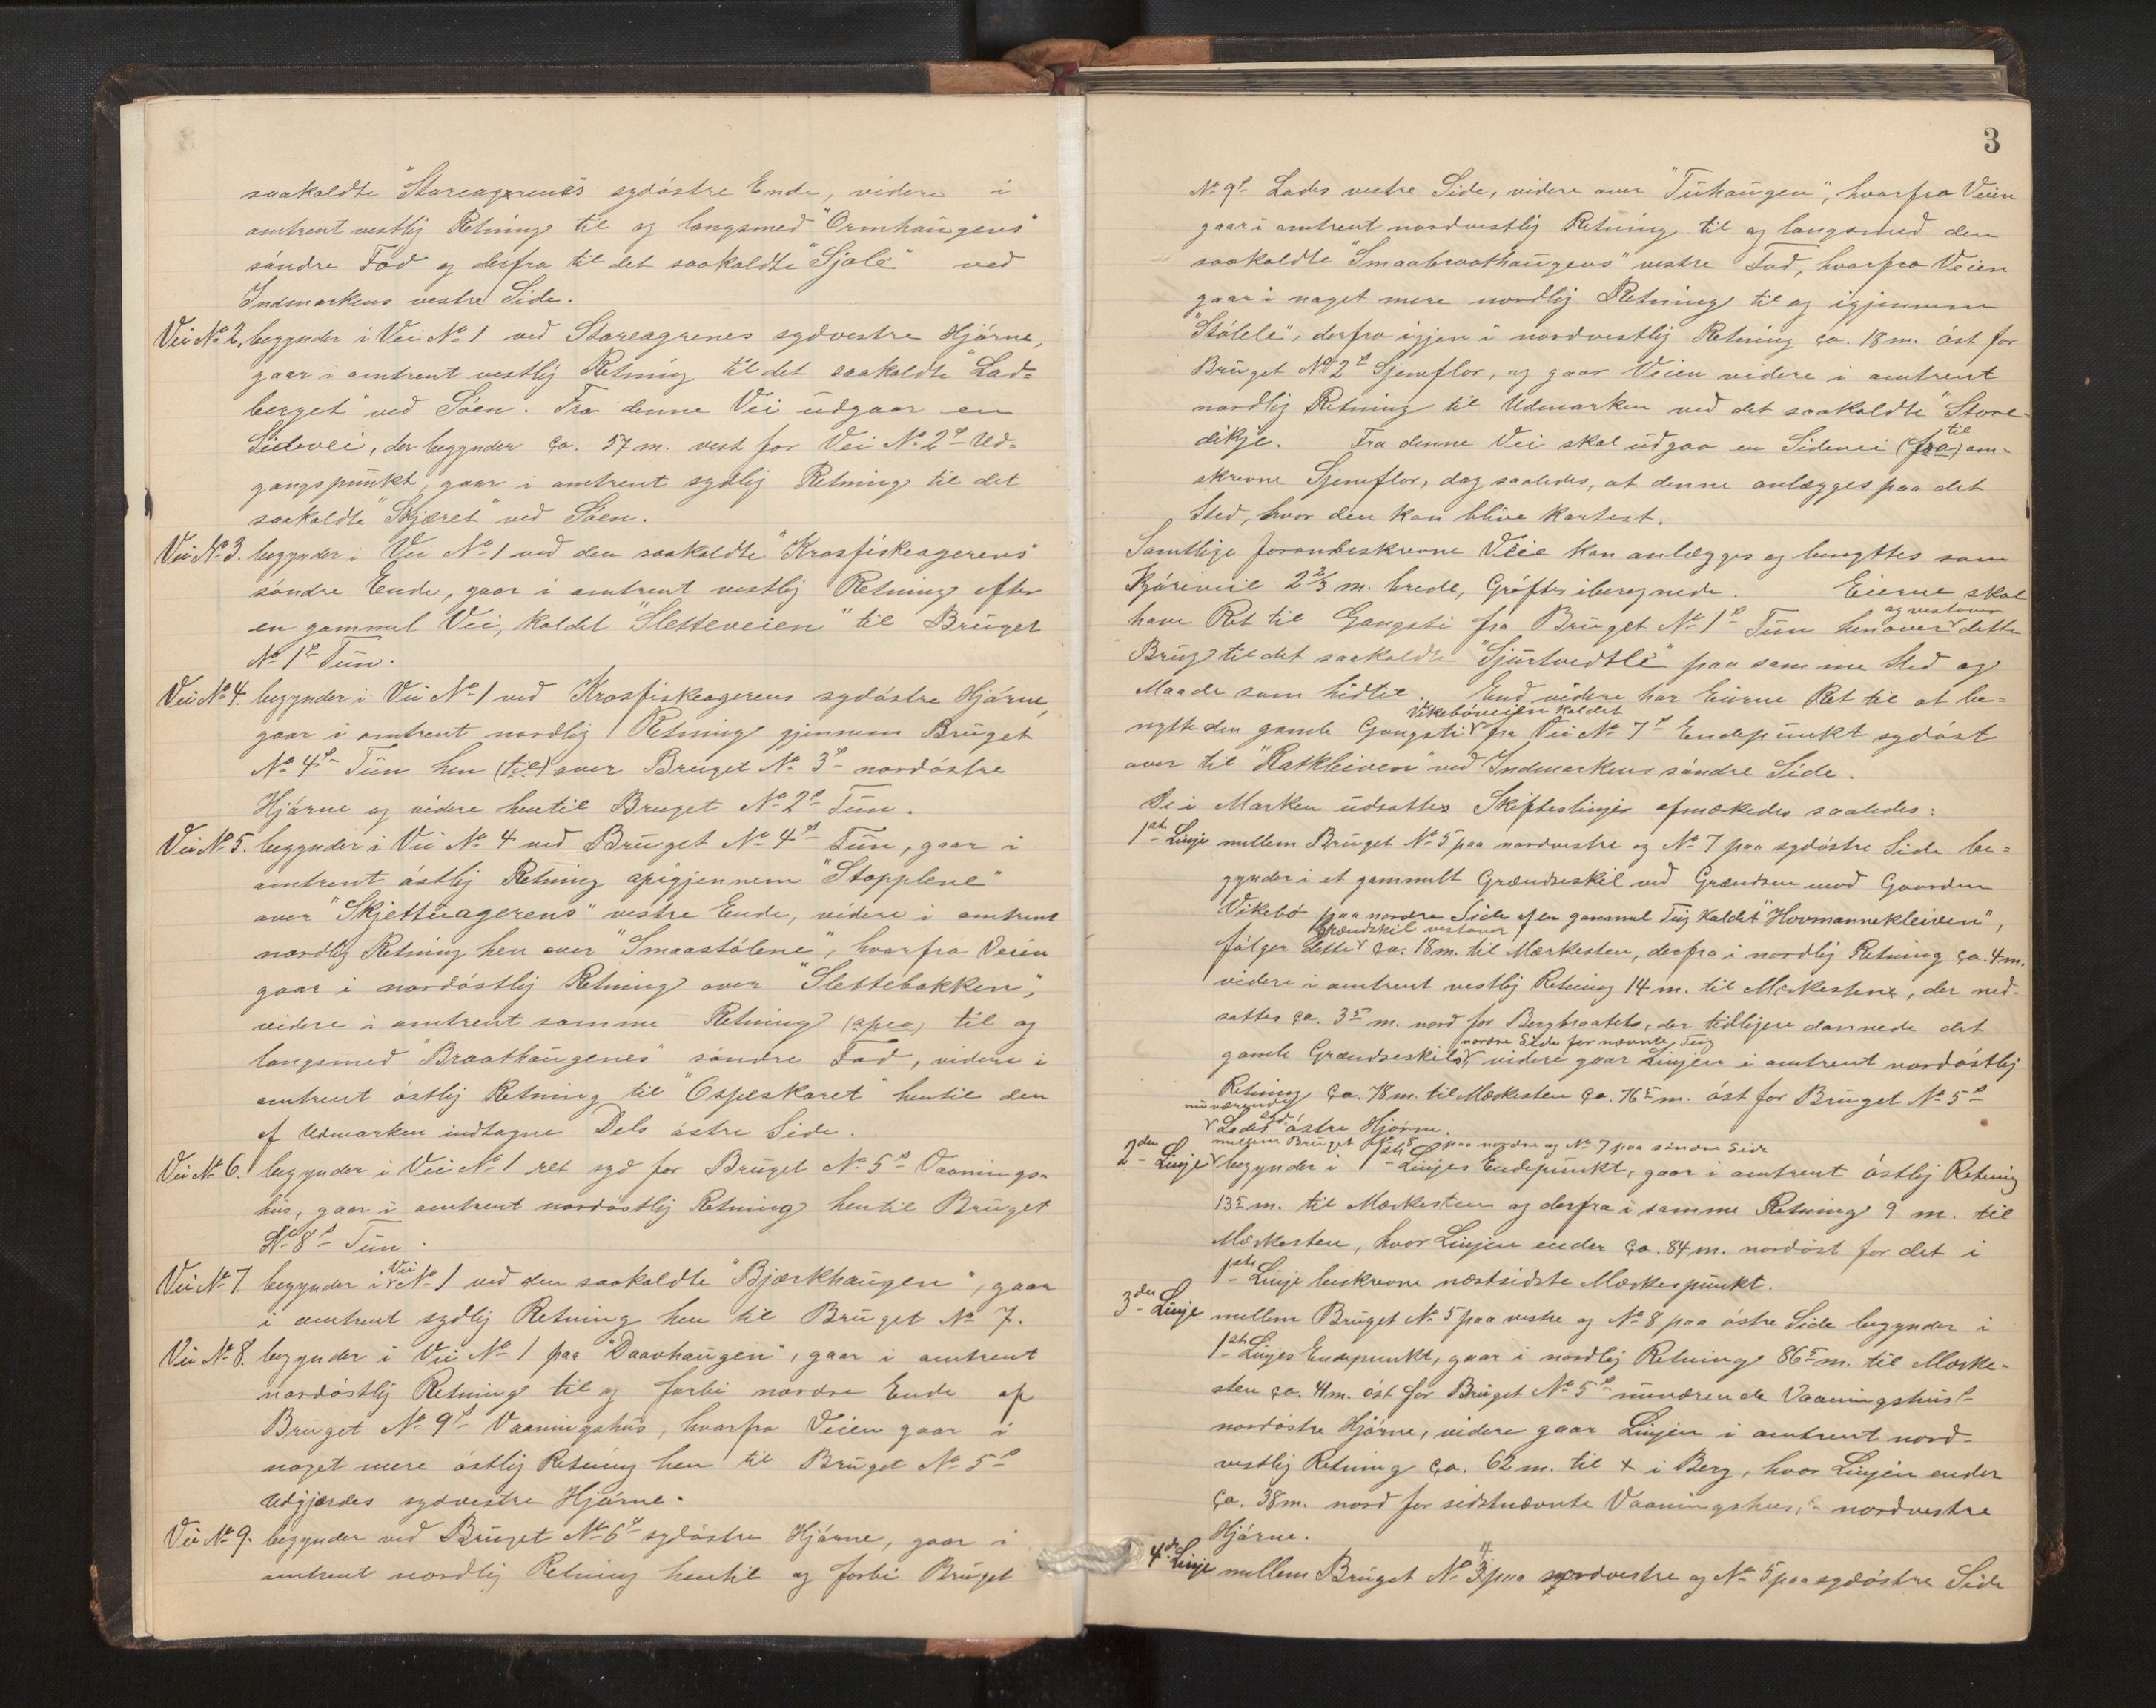 saakaldte "Stareagrenes sydöstre Ende, videre i
amtrent vestlig Retning til og langsmed "Ormhaugens"
söndre Fod og derfra til det saakaldte "Sjale" ved
Indmarkens vestre Side.
Vei No 2. begynder i Vei No 1 ved Stareagrenes sydvestre Hjörne,
gaar i amtrent vestlig Retning til det saakaldte "Lad=
berget" ved Söen. Fra denne Vei udgaar en
Sidevei, der begynder ca. 57 m. vest for Vei No 2s Ud=
gangspunkt, gaar i amtrent sydlig Retning til det
saakaldte "Skjæret" ved Söen.
Vei No 3. begynder i Vei No 1 ved den saakaldte "Krosfiskeagerens"
söndre Ende, gaar i amtrent vestlig Retning efter
en gammel Vei, kaldet "Sletteveien" til Bruget
No 1s Tun.
Vei No 4. begynder i Vei No 1 ved Krosfiskeagerens sydöstre Hjörne,
gaar i amtrent nordlig Retning gjennem Bruget
No 4s Tun hen (til) over Bruget No 3s nordöstre
Hjörne og videre hentil Bruget No 2s Tun.
Vei No 5. begynder i Vei No 4 ved Bruget No 4s Tun, gaar i
amtrent östlig Retning opigjennem "Stopplene"
over "Skjettuagerens" vestre Ende, videre i amtrent
nordlig Retning hen over "Smaastölene", hvorfra Veien
gaar i nordöstlig Retning over "Slettebakken",
videre i amtrent samme Retning (apea) til og
langsmed "Braathaugenes" söndre Fod, videre i
amtrent östlig Retning til "Ospeskaret" hentil den
af Udmarken indtagne Dels östre Side.
Vei No 6. begynder i Vei No 1 ret syd for Bruget No 5s Vaanings=
hus, gaar i amtrent nordöstlig Retning hentil Bruget
No 8s Tun.
Vei No 7. begynder i Vei No 1 ved den saakaldte "Bjærkhaugen", gaar
i amtrent sydlig Retning hen til Bruget No 7.
Vei No 8. begynder i Vei No 1 paa "Daavhaugen", gaar i amtrent
nordöstlig Retning til og forbi nordre Ende af
Bruget No 9s Vaaningshus, hvorfra Veien gaar i
noget mere östlig Retning hen til Bruget No 5s
Udgjærdes sydvestre Hjörne.
Vei No 9. begynder ved Bruget No 6s sydöstre Hjörne, gaar i
amtrent nordlig Retning hentil og forbi Bruget
3
No 9s Lades vestre Side, videre over "Tuhaugen", hvorfra Veien
gaar i amtrent nordvestlig Retning til og langsmed den
saakaldte "Smaabraathaugens" vestre Fod, hvorfra Veien
gaar i noget mere nordlig Retning til og igjennem
"Stölele", derfra igjen i nordvestlig Retning ca. 18 m. öst for
Bruget No 2s Sjemeflor, og gaar Veien videre i amtrent
nordlig Retning til Udmarken ved det saakaldte "Store=
dikje. Fra denne Vei skal udgaa en Sidevei (fra) til om=
skrevne Sjemeflor, dog saaledes, at denne anlægges paa det
Sted, hvor den kan blive kortest.
Samtlige foranbeskrevne Veie kan anlægges og benyttes som
Kjöreveie 2 2/3 m. brede, Gröfter iberegnede. Eierne skal
have Ret til Gangsti fra Bruget No 1s Tun henover og vestover dette
Brug til det saakaldte "Sjurtvedtle" paa samme Sted og
Maade som hidtil. End videre har Eierne Ret til at be=
nytte den gamle Gangsti Vikebøveien kaldet fra Vei No 7s Endepunkt sydöst
over til "Ratkleiven" ved Indmarkens söndre Side.
De i Marken udsatte Skifteslinjer afmærkedes saaledes:
1ste Linje mellem Bruget No 5 paa nordvestre og No 7 paa sydöstre Side be=
gynder i et gammelt Grændseskil ved Grændsen mod Gaarden
Vikebø paa nordre Side af en gammel Teig kaldet "Hovmannekleiven",
fölger dette Grændskil vestover ca. 18 m. til Mærkesten, derfra i nordlig Retning ca. 4 m.
videre i amtrent vestlig Retning 14 m. til Mærkesten, der ned=
sattes ca. 35 m. nord for Bergbraatet, der tidligere dannede det
gamle Grændseskils nordre Side for nævnte Teig, videre gaar Linjen i amtrent nordöstlig
Retning ca. 78 m. til Mærkesten ca. 165 m. öst for Bruget No 5s
nuværende Lades östre Hjörne.
2den Linje mellem Bruget No 8 paa nordre og No 7 paa söndre Side begynder i 1ste Linjes Endepunkt, gaar i amtrent östlig Retning
135 m. til Mærkesten og derfra i samme Retning 9 m. til
Mærkesten, hvor Linjen ender ca. 84 m. nordöst for det i
1ste Linje beskrevne næstsidste Mærkespunkt.
3den Linje mellem Bruget No 5 paa vestre og No 8 paa östre Side begynder i
1ste Linjes Endepunkt, gaar i nordlig Retning 865 m. til Mærke=
sten ca. 41 m. öst for Bruget No 5s nuværende Vaaningshus's
nordöstre Hjörne, videre gaar Linjen i amtrent nord=
vestlig Retning ca. 62 m. til x i Berg, hvor Linjen ender
ca. 38 m. nord for sidstnævnte Vaaningshus's nordvestre
Hjörne.
4de Linje mellem Bruget No 4 paa nordvestre og No 5 paa sydöstre Side